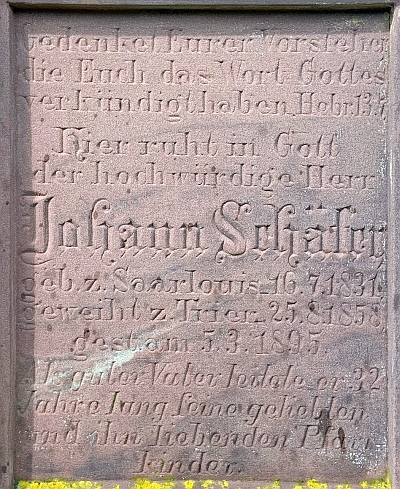 Gedenket Eurer Vorsteher
die Euch das Wort Gottes
verkündigt haben. Hebr. 13.7
Hier ruht in Gott
der hochwürdige Herr
Johann Schäfer
geb. z. Saarlouis 16.7.1831.
geweiht z. Trier 25.8.1858
gest. am 5.3.1895.
Als guter Vater leitete er 32
Jahre lang seine geliebten
und ihn liebenden Pfarr
kinder.